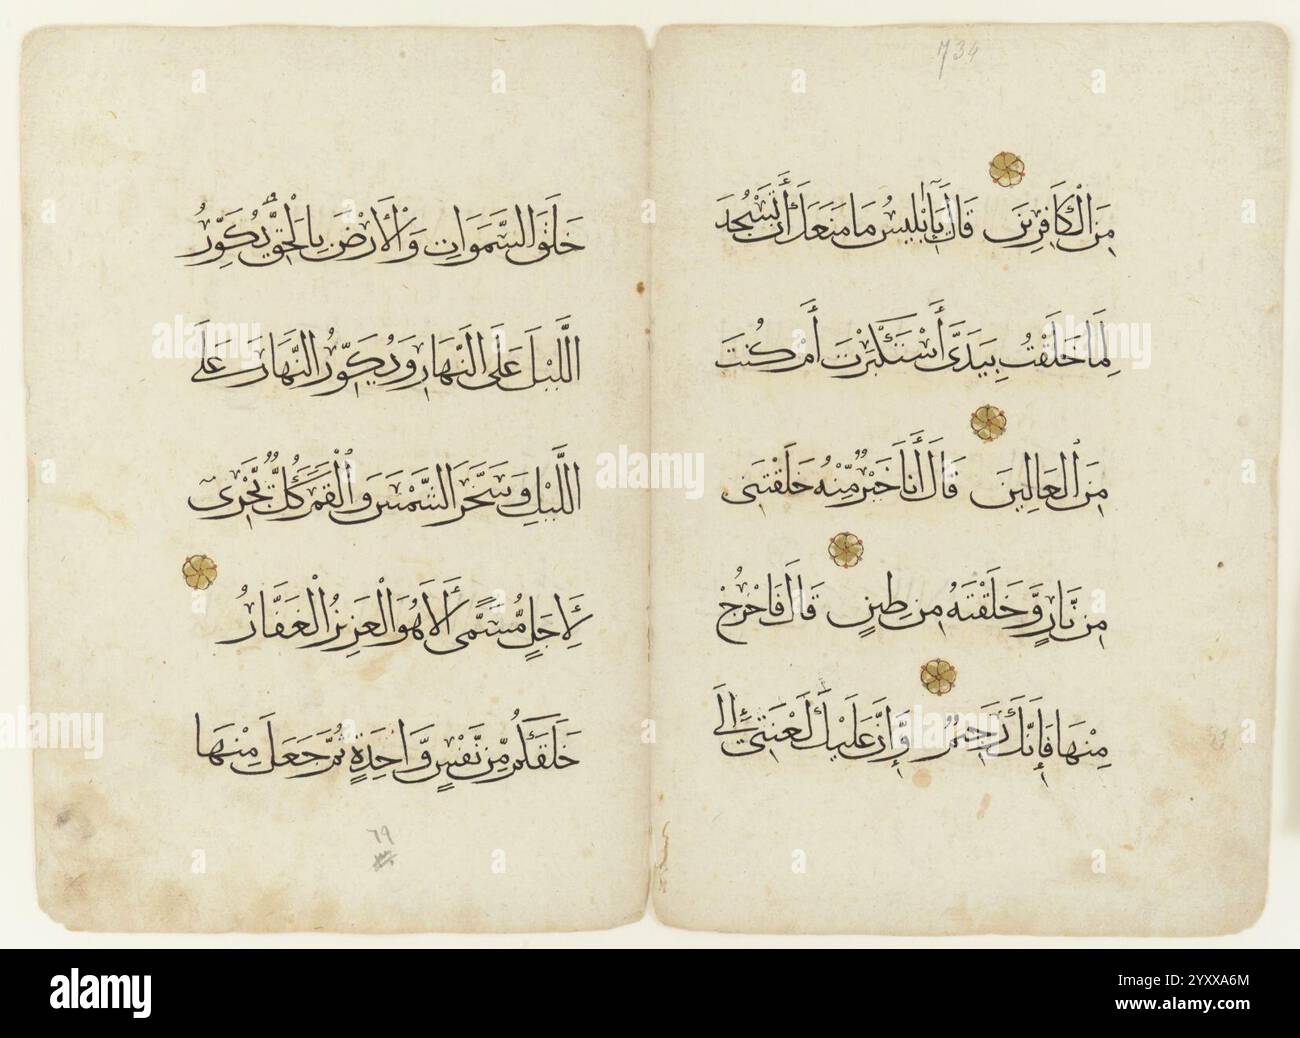 734
مِنَ الْكَافِرِينَ قَالَ يَا إِبْلِيسُ مَا مَنَعَكَ أَنْ تَسْجُدَ
لِمَا خَلَقْتُ بِيَدَيَّ أَسْتَكْبَرْتَ أَمْ كُنْتَ
مِنَ الْعَالِينَ قَالَ أَنَا خَيْرٌ مِّنْهُ خَلَقْتَنِي
مِنْ نَّارٍ وَّخَلَقْتَهُ مِنْ طِينٍ قَالَ فَاخْرُجْ
مِنْهَا فَإِنَّكَ رَجِيمٌ وَّإِنَّ عَلَيْكَ لَعْنَتِي إِلَى
خَلَقَ السَّمَوَاتِ وَالْأَرْضَ بِالْحَقِّ يُكَوِّرُ
اللَّيْلَ عَلَى النَّهَارِ وَيُكَوِّرُ النَّهَارَ عَلَى
اللَّيْلِ وَسَخَّرَ الشَّمْسَ وَالْقَمَرَ كُلٌّ يَّجْرِي
لِأَجَلٍ مُّسَمًّى أَلَا هُوَ الْعَزِيزُ الْغَفَّارُ
خَلَقَكُمْ مِّنْ نَّفْسٍ وَّاحِدَةٍ ثُمَّ جَعَلَ مِنْهَا
٦٩
alamy
alamy
alamy
alamy
alamy
alamy
a
a
a
a
a
a
alamy
Image ID: 2YXXA6M
www.alamy.com